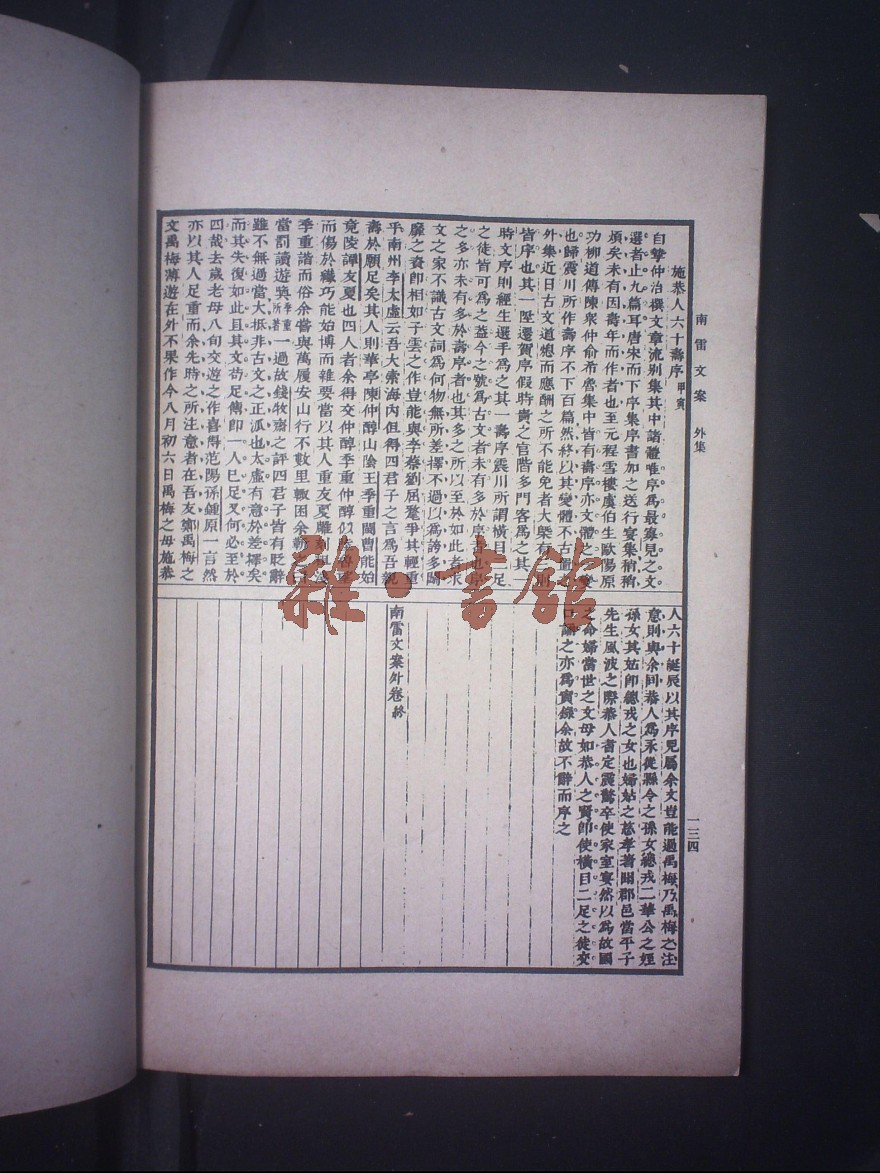 南雷文案 外集
一三四
施恭人六十壽序 甲寅
自摯仲治撰文章流別集其中諸體唯序爲最寡見之文
選者止九篇耳唐宋而下序集序書加之送行宴集稍稍
煩矣未有因壽年而作者也至元程雪樓虞伯生歐陽原
功柳道傳陳衆仲俞希魯集中皆有壽序亦文體之變
也歸震川所作壽序不下百篇然終以其變體不古置之
外集近日古文道熄而應酬之所不能免者大槩有三則
皆序也其一陞遷賀序假時貴之官階多門客爲之其一
時文序則經生選手爲之其一壽序震川所謂橫目二足
之徒皆可爲之蓋今之號爲古文者未有多於序者也序
之多亦未有多於壽序者也其多之所以至於如此者求
文之家不識古文詞爲何物無所差擇不過以爲誇多鬭
靡之資卽相如子雲之作豈能與李蔡劉屈氂爭其輕重
乎南州李太虛云吾大索海內但得四君子之言爲吾親
壽於願足矣其人則華亭陳仲醇山陰王季重閩曹能始
竟陵譚友夏也四人者余得交仲醇季重仲醇似
而傷於纖巧能始博而雜要當以其人重友夏雕
季重諧而俗余嘗與萬履安山行不數里輒困余
當罰讀遊喚季重所著一過故錢牧齋之評四君子皆有貶辭
雖不無過當大抵非古文之正派也太虛有意於差擇矣
而其失復如此且其文苟足傳卽一人已足又何必至於
四哉去歲老母八旬交遊之作喜得范陽孫鍾原一言然
亦以其人足重而余先時之所注意者在吾友鄭禹梅之
文禹梅薄遊在外不果作今八月初六日禹梅之母施恭
人六十誕辰以其序見屬余文豈能過禹梅乃禹梅之注
意則與余同恭人爲永從縣令之孫女總戎二華公之姪
孫女其姑卽總戎之女也婦姑之慈孝著聞郡邑當平子
先生風波之際恭人耆定震驚卒使家室宴然以爲故國
之命婦當世之文母如恭人之賢卽使橫目二足之徒交
口誦之亦爲實錄余故不辭而序之
南雷文案外卷終
雜·書館